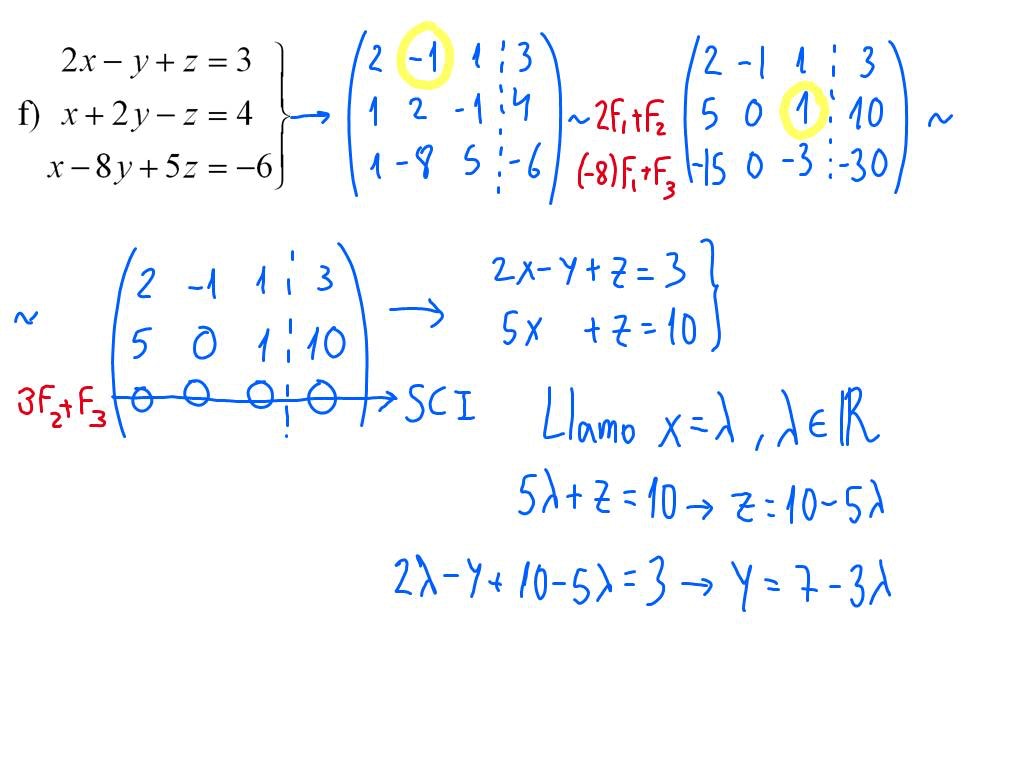 2x − y + z = 3
f) x + 2y − z = 4
x − 8y + 5z = −6
→
2 -1 1 ¦ 3
1 2 -1 ¦ 4
1 -8 5 ¦ -6
~ 2F₁+F₂
(-8)F₁+F₃
2 -1 1 ¦ 3
5 0 1 ¦ 10
-15 0 -3 ¦ -30
~
~
3F₂+F₃
2 -1 1 ¦ 3
5 0 1 ¦ 10
0 0 0 ¦ 0 → SCI
→
2x-y+z=3
5x +z=10
Llamo x=λ, λ∈ℝ
5λ+z=10→z=10-5λ
2λ-y+10-5λ=3→y=7-3λ